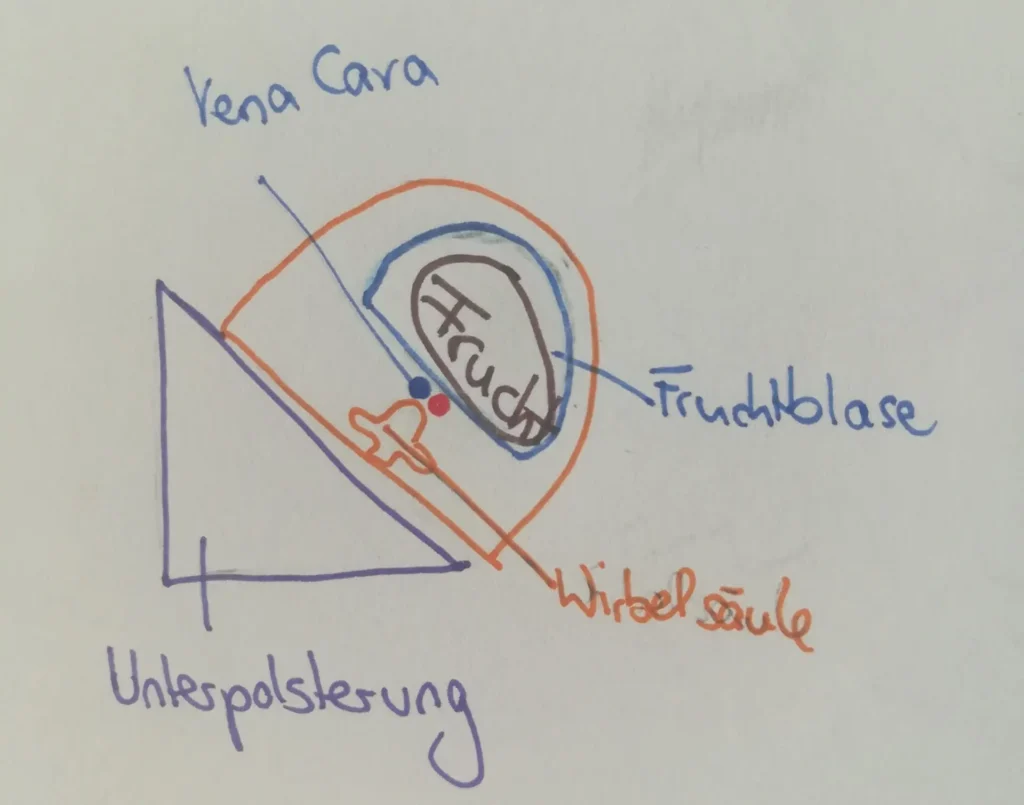 Vena Cava
Frucht
Fruchtblase
Wirbelsäule
Unterpolsterung